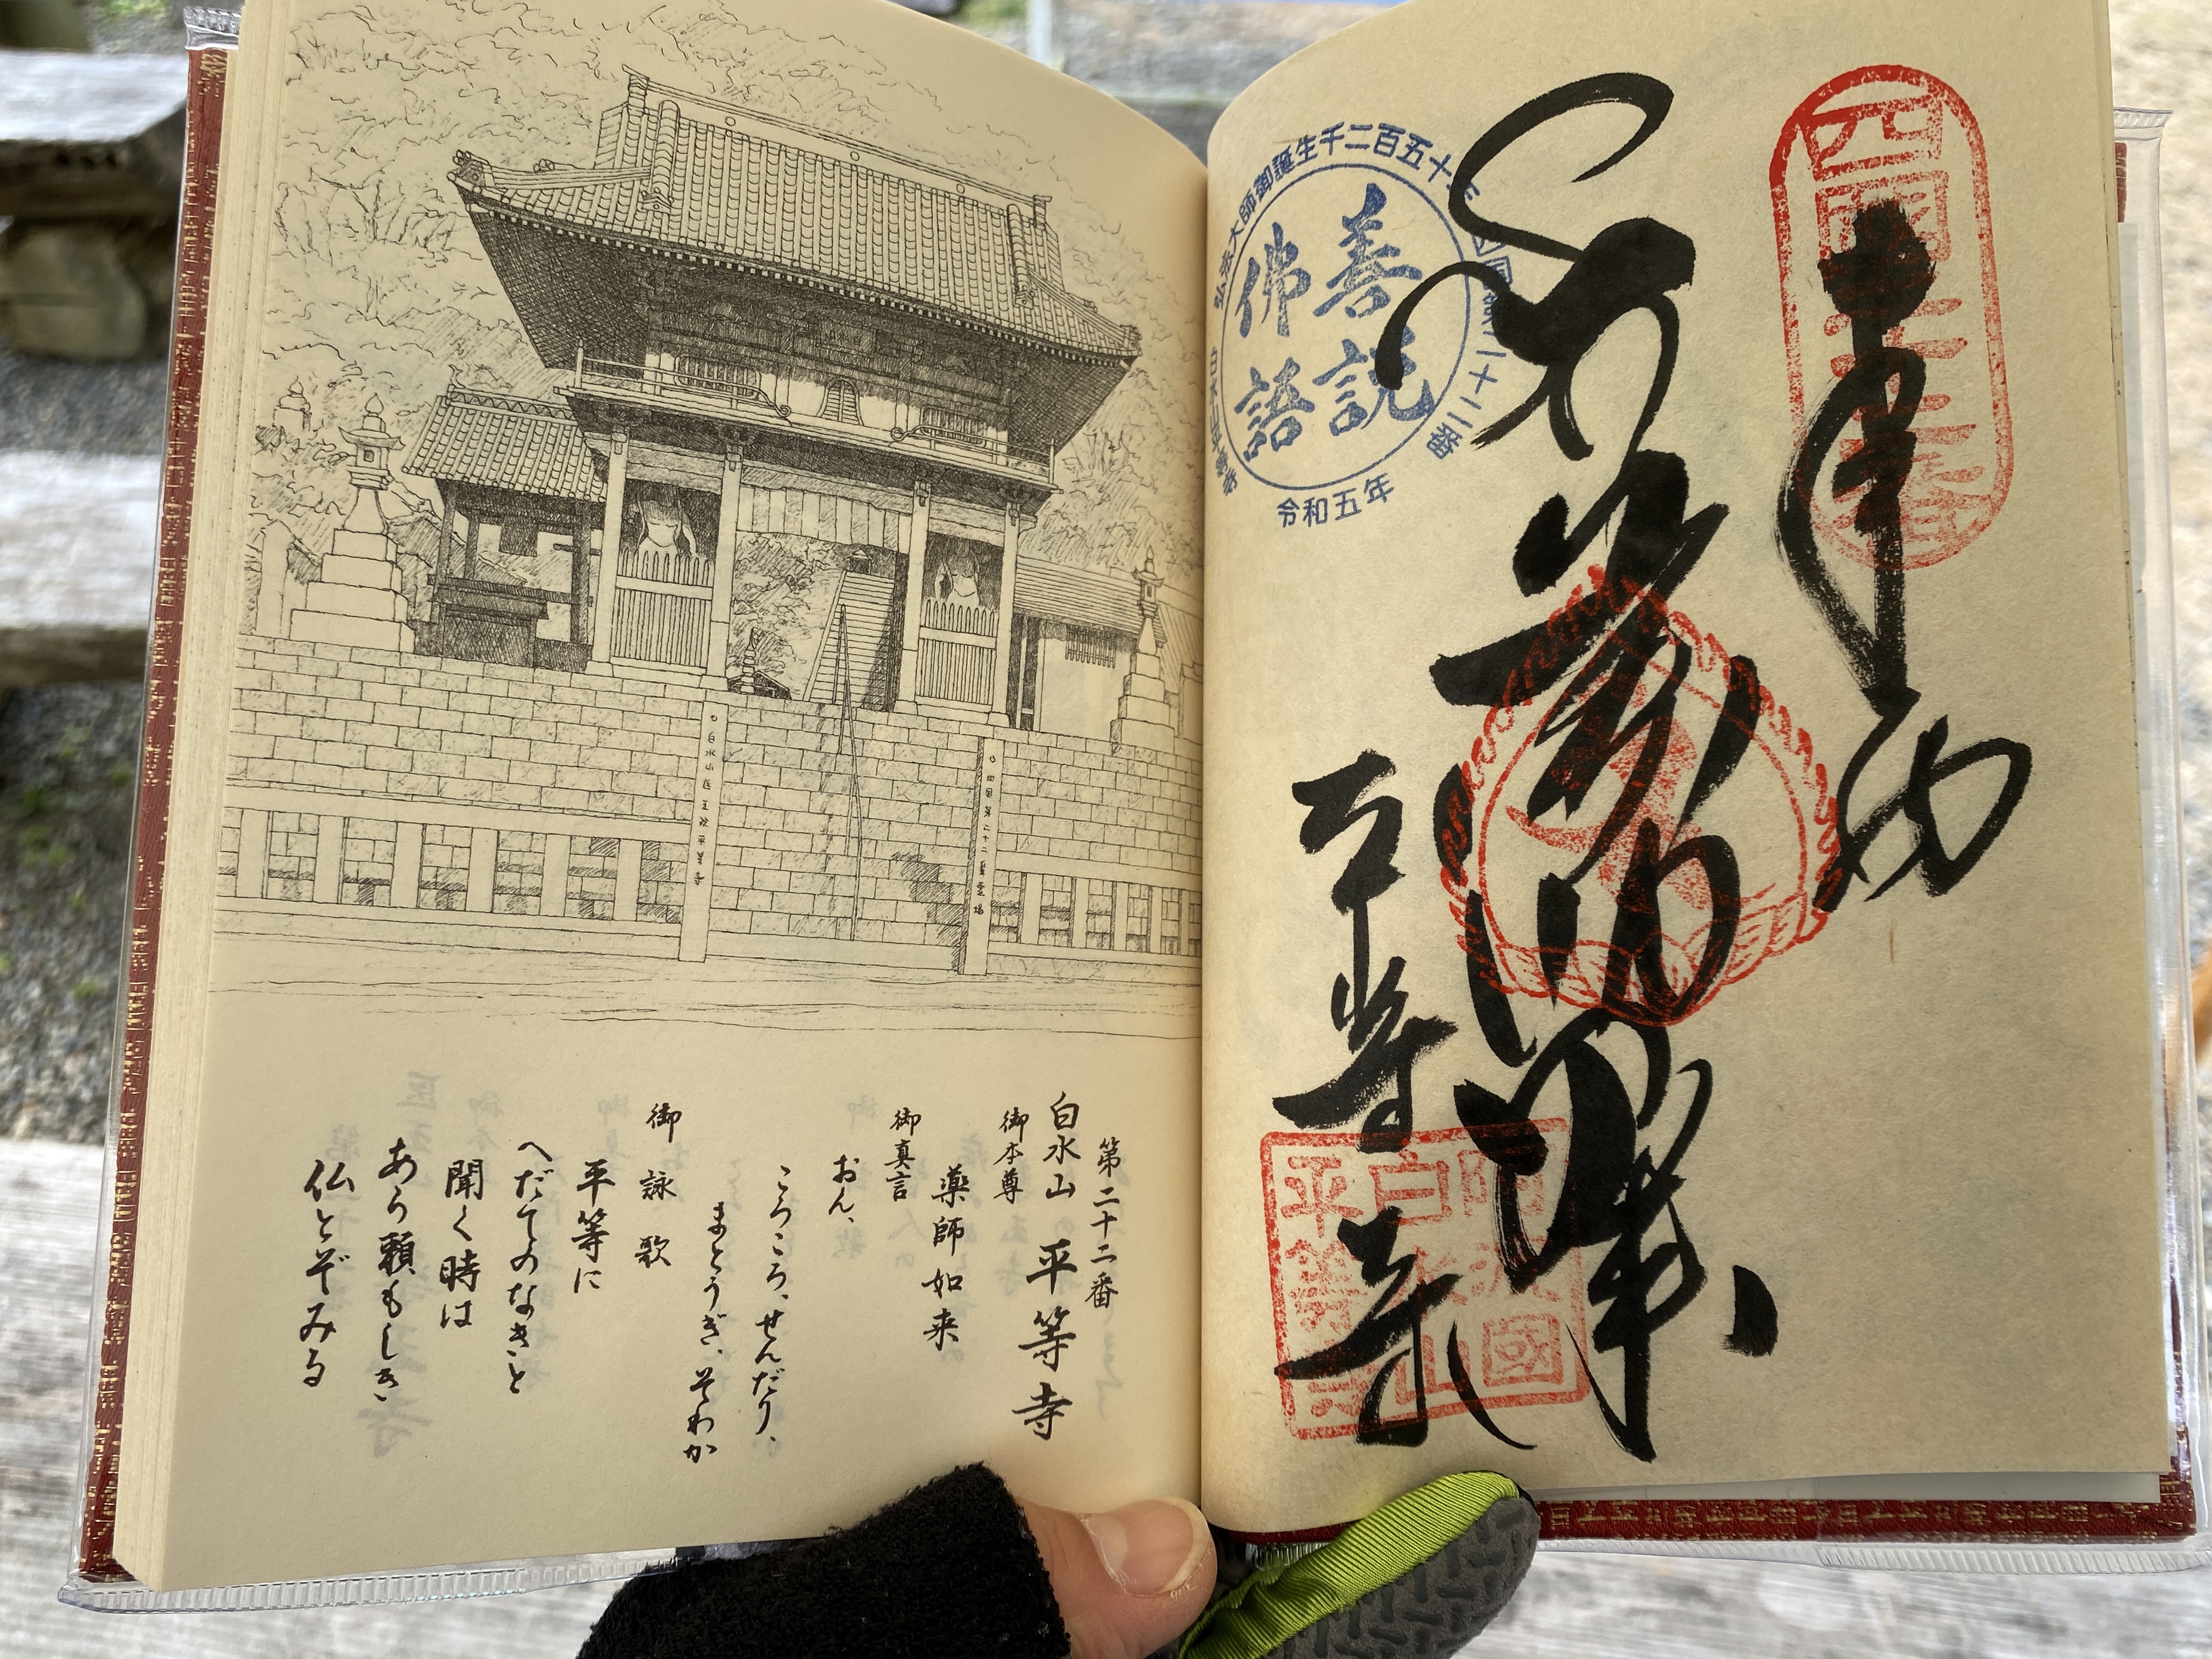 四國第二十二番
奉納
弘法大師御誕生千二百五十年
四国第二十二番
白水山平等寺
善説
佛語
令和五年
平等寺
阿波國
白水山
平等寺
第二十二番
白水山 平等寺
御本尊
薬師如来
御真言
おん、
ころころ、せんだり、
まとうぎ、そわか
御詠歌
平等に
へだてのなきと
聞く時は
あら頼もしき
仏とぞみる
白水山医王院平等寺
四国第二十二番霊場